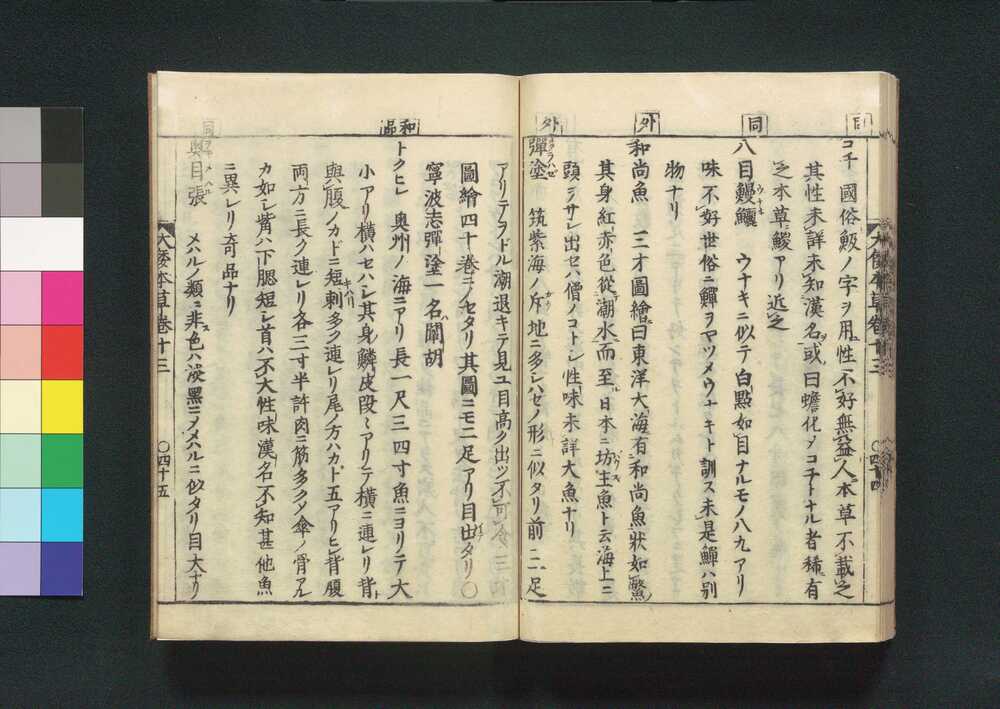 同
コチ 國俗鯏ノ字ヲ用性不好無益人本草不載之
其性未詳未知漢名或曰蟾化メコチトナル者稀有
之本草鯼アリ近之
同
八目鰻鱺 ウナキニ似テ白點如目ナルモノ八九アリ
味不好世俗ニ鱓ヲヤツメウナキト訓ス未是鱓ハ別
物ナリ
外
和尚魚 三才圖繪曰東洋大海有和尚魚狀如鱉
其身紅赤色從潮水而至日本ニ坊主魚ト云海上ニ
頭ヲサシ出セハ僧ノコトシ性味未詳大魚ナリ
外
彈塗 筑紫海ノ斥地ニ多シハゼノ形ニ似タリ前ニ二足
大倭本草卷十三
〇四十四
アリテヲドル潮退キテ見ユ目高ク出ツ不可食三才
圖繪四十卷ニノセタリ其圖ニモ二足アリ目出タリ〇
寧波志彈塗一名闌胡
和品
トクヒレ 奥州ノ海ニアリ長一尺三四寸魚ニヨリテ大
小アリ横ハセハシ其身鱗皮段々アリテ橫ニ連レリ背ト
與腹ノカドニ短刺多ク連レリ尾ノ方ハカド五アリヒレ背腹
両方ニ長ク連レリ各三寸半許肉ニ筋多クメ傘ノ骨アル
カ如シ觜ハ下腮短シ首ハ不大性味漢名不知甚他魚
ニ異レリ奇品ナリ
同
奥目張 メハルノ類ニ非色ハ淡黑ニメメハルニ似タリ目大ナリ
大倭本草卷十三
〇四十五